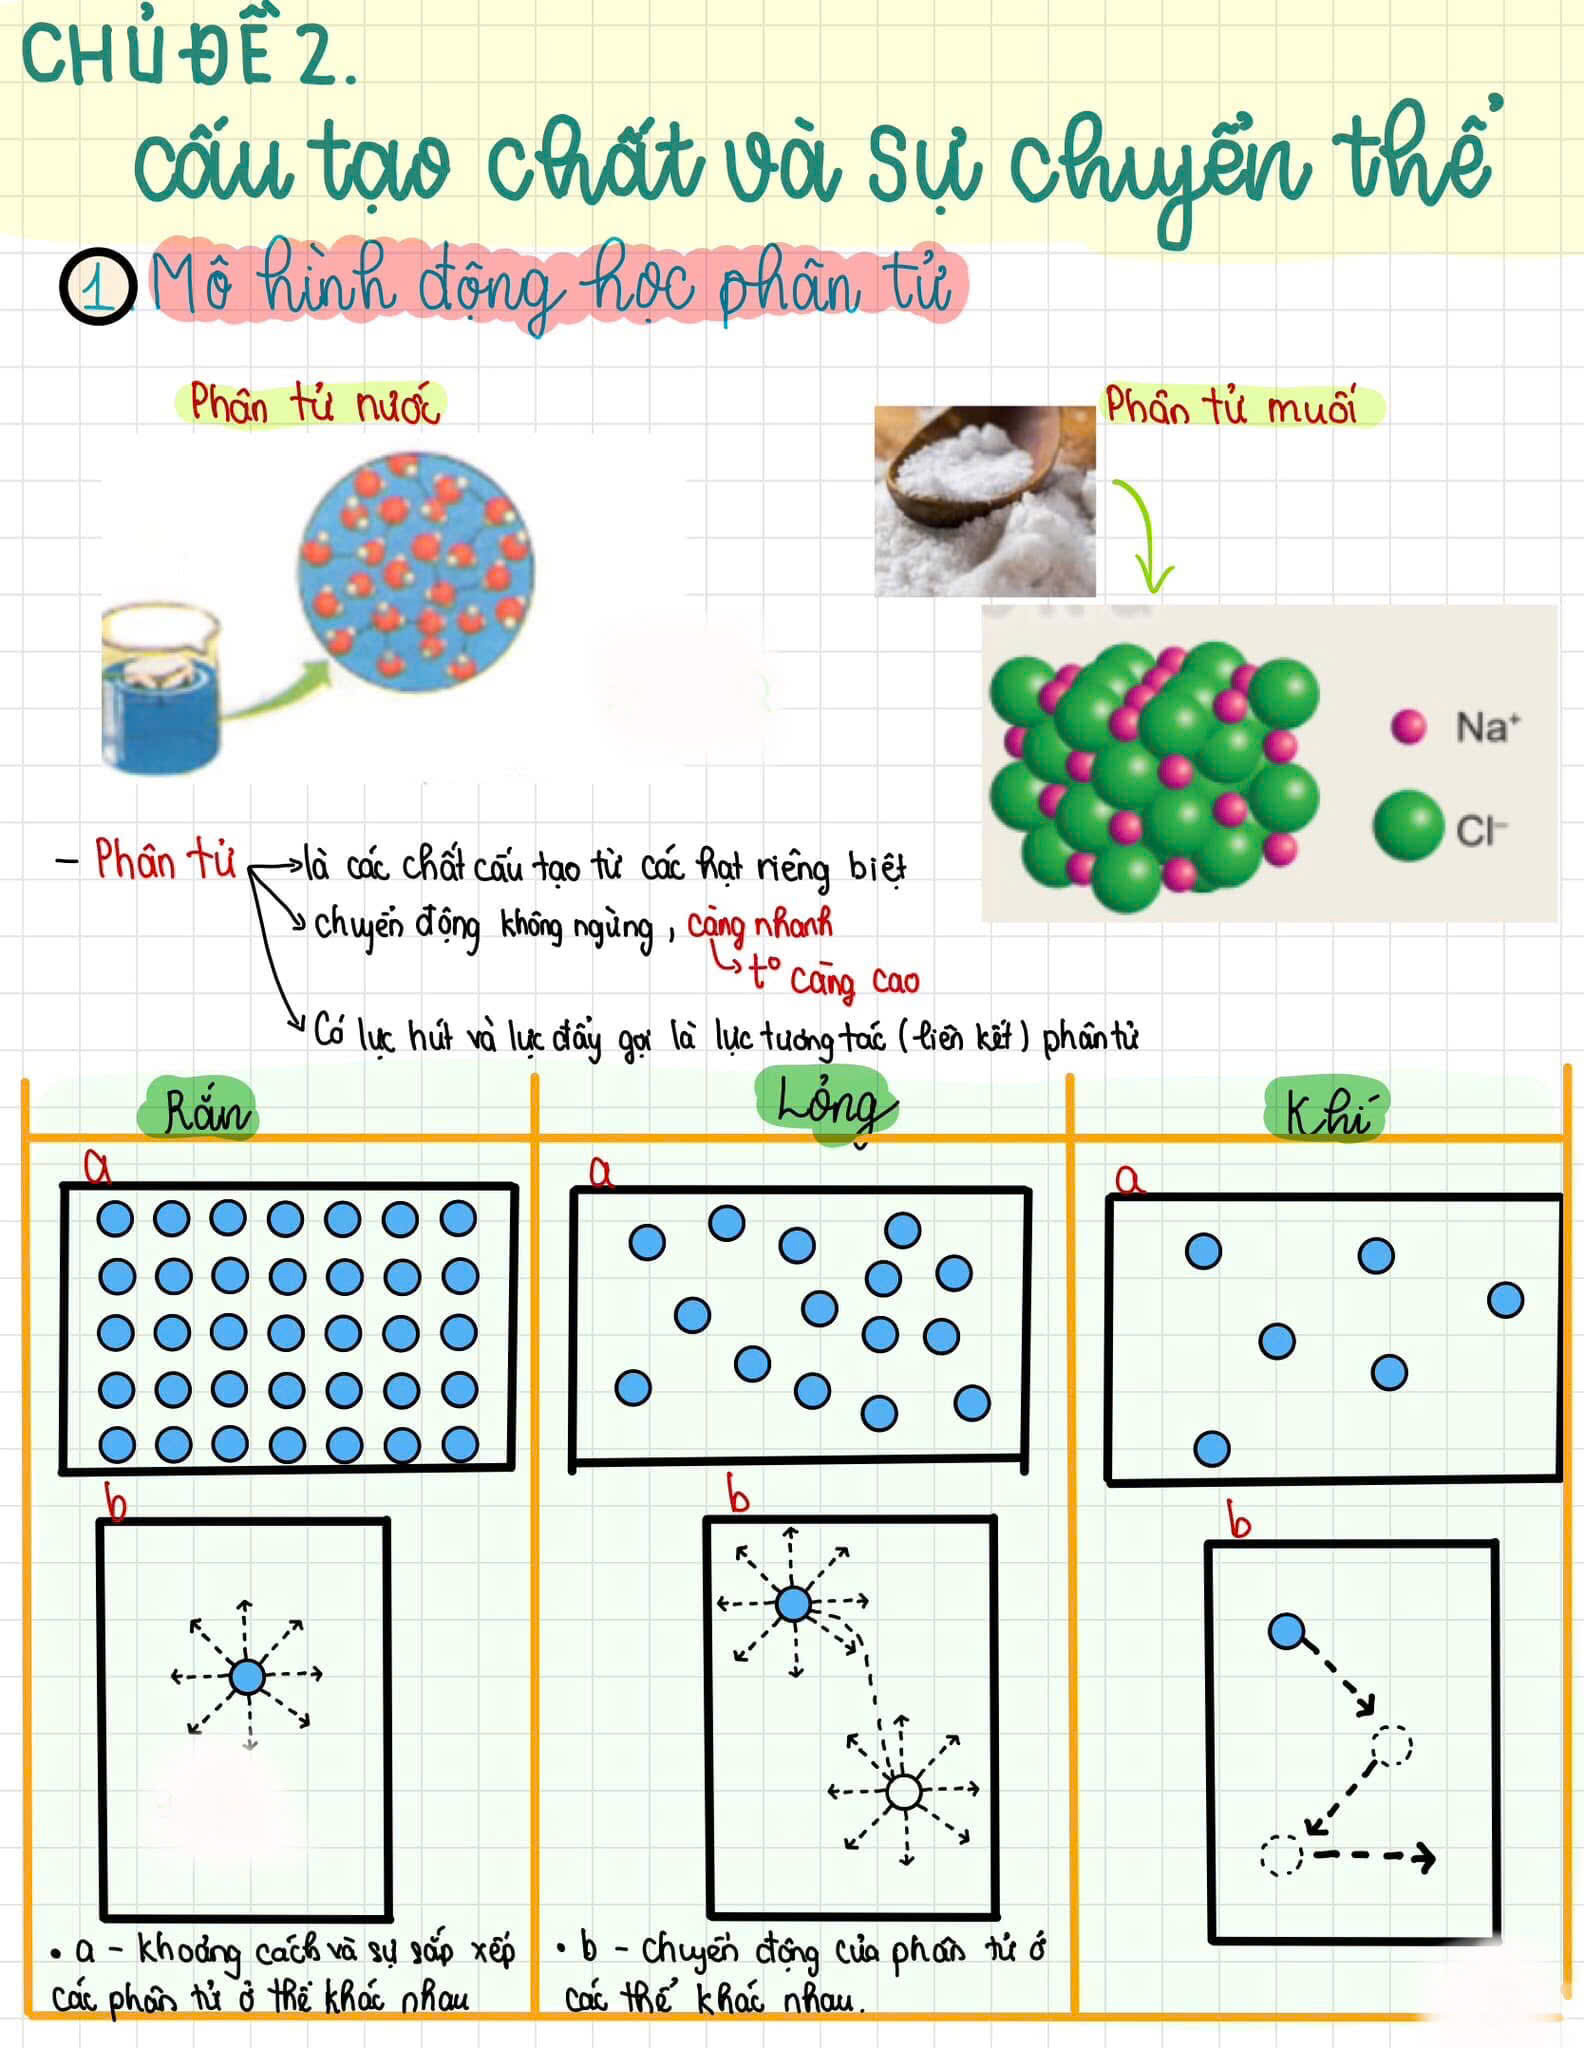 CHỦ ĐỀ 2.
cấu tạo chất và sự chuyển thể
1 Mô hình động học phân tử
Phân tử nước
Phân tử muối
Na⁺
Cl⁻
- Phân tử → là các chất cấu tạo từ các hạt riêng biệt
→ chuyển động không ngừng, càng nhanh
↳ t° càng cao
→ Có lực hút và lực đẩy gọi là lực tương tác (liên kết) phân tử
Rắn
Lỏng
Khí
a
a
a
b
b
b
• a - khoảng cách và sự sắp xếp
các phân tử ở thể khác nhau
• b - chuyển động của phân tử ở
các thể khác nhau.